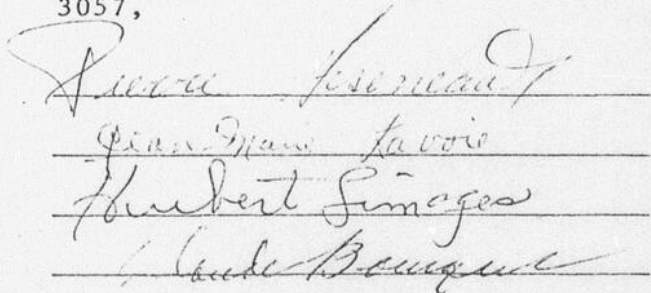 3057,
Pierre
Jean-Marie Lavoie
Hubert Limoges
Claude Bourque